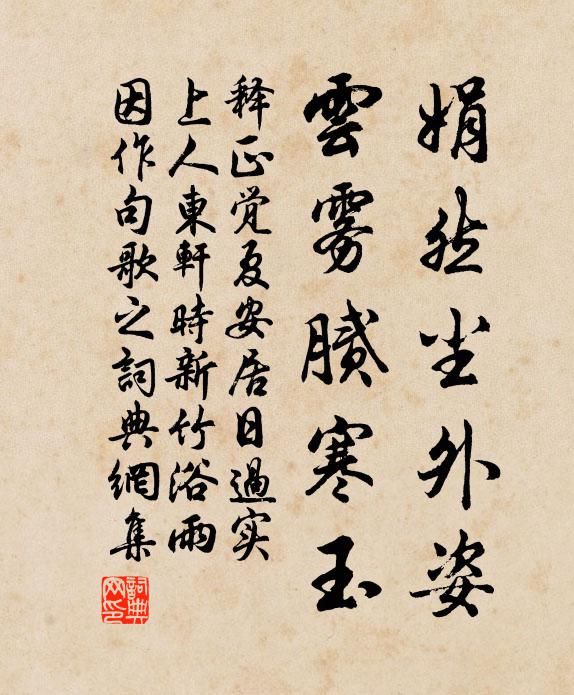 娟然尘外姿
雲雾膩寒玉
释正觉夏安居日過实
上人東軒時新竹浴雨
因作句歌之詞典網集
詞典
网印